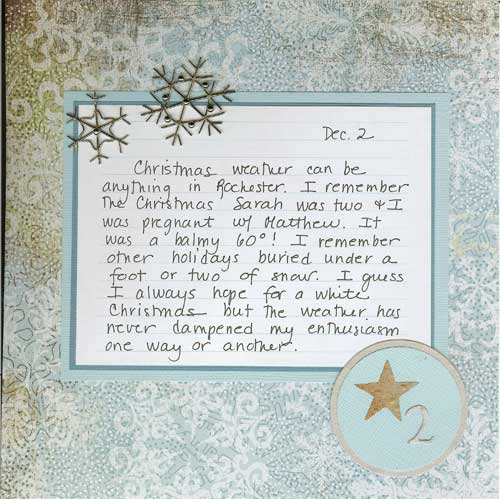 Dec. 2
Christmas weather can be
anything in Rochester. I remember
The Christmas Sarah was two & I
was pregnant w/ Matthew. It
was a balmy 60°! I remember
other holidays buried under a
foot or two of snow. I guess
I always hope for a white
Christmas but the weather has
never dampened my enthusiasm
one way or another.
2